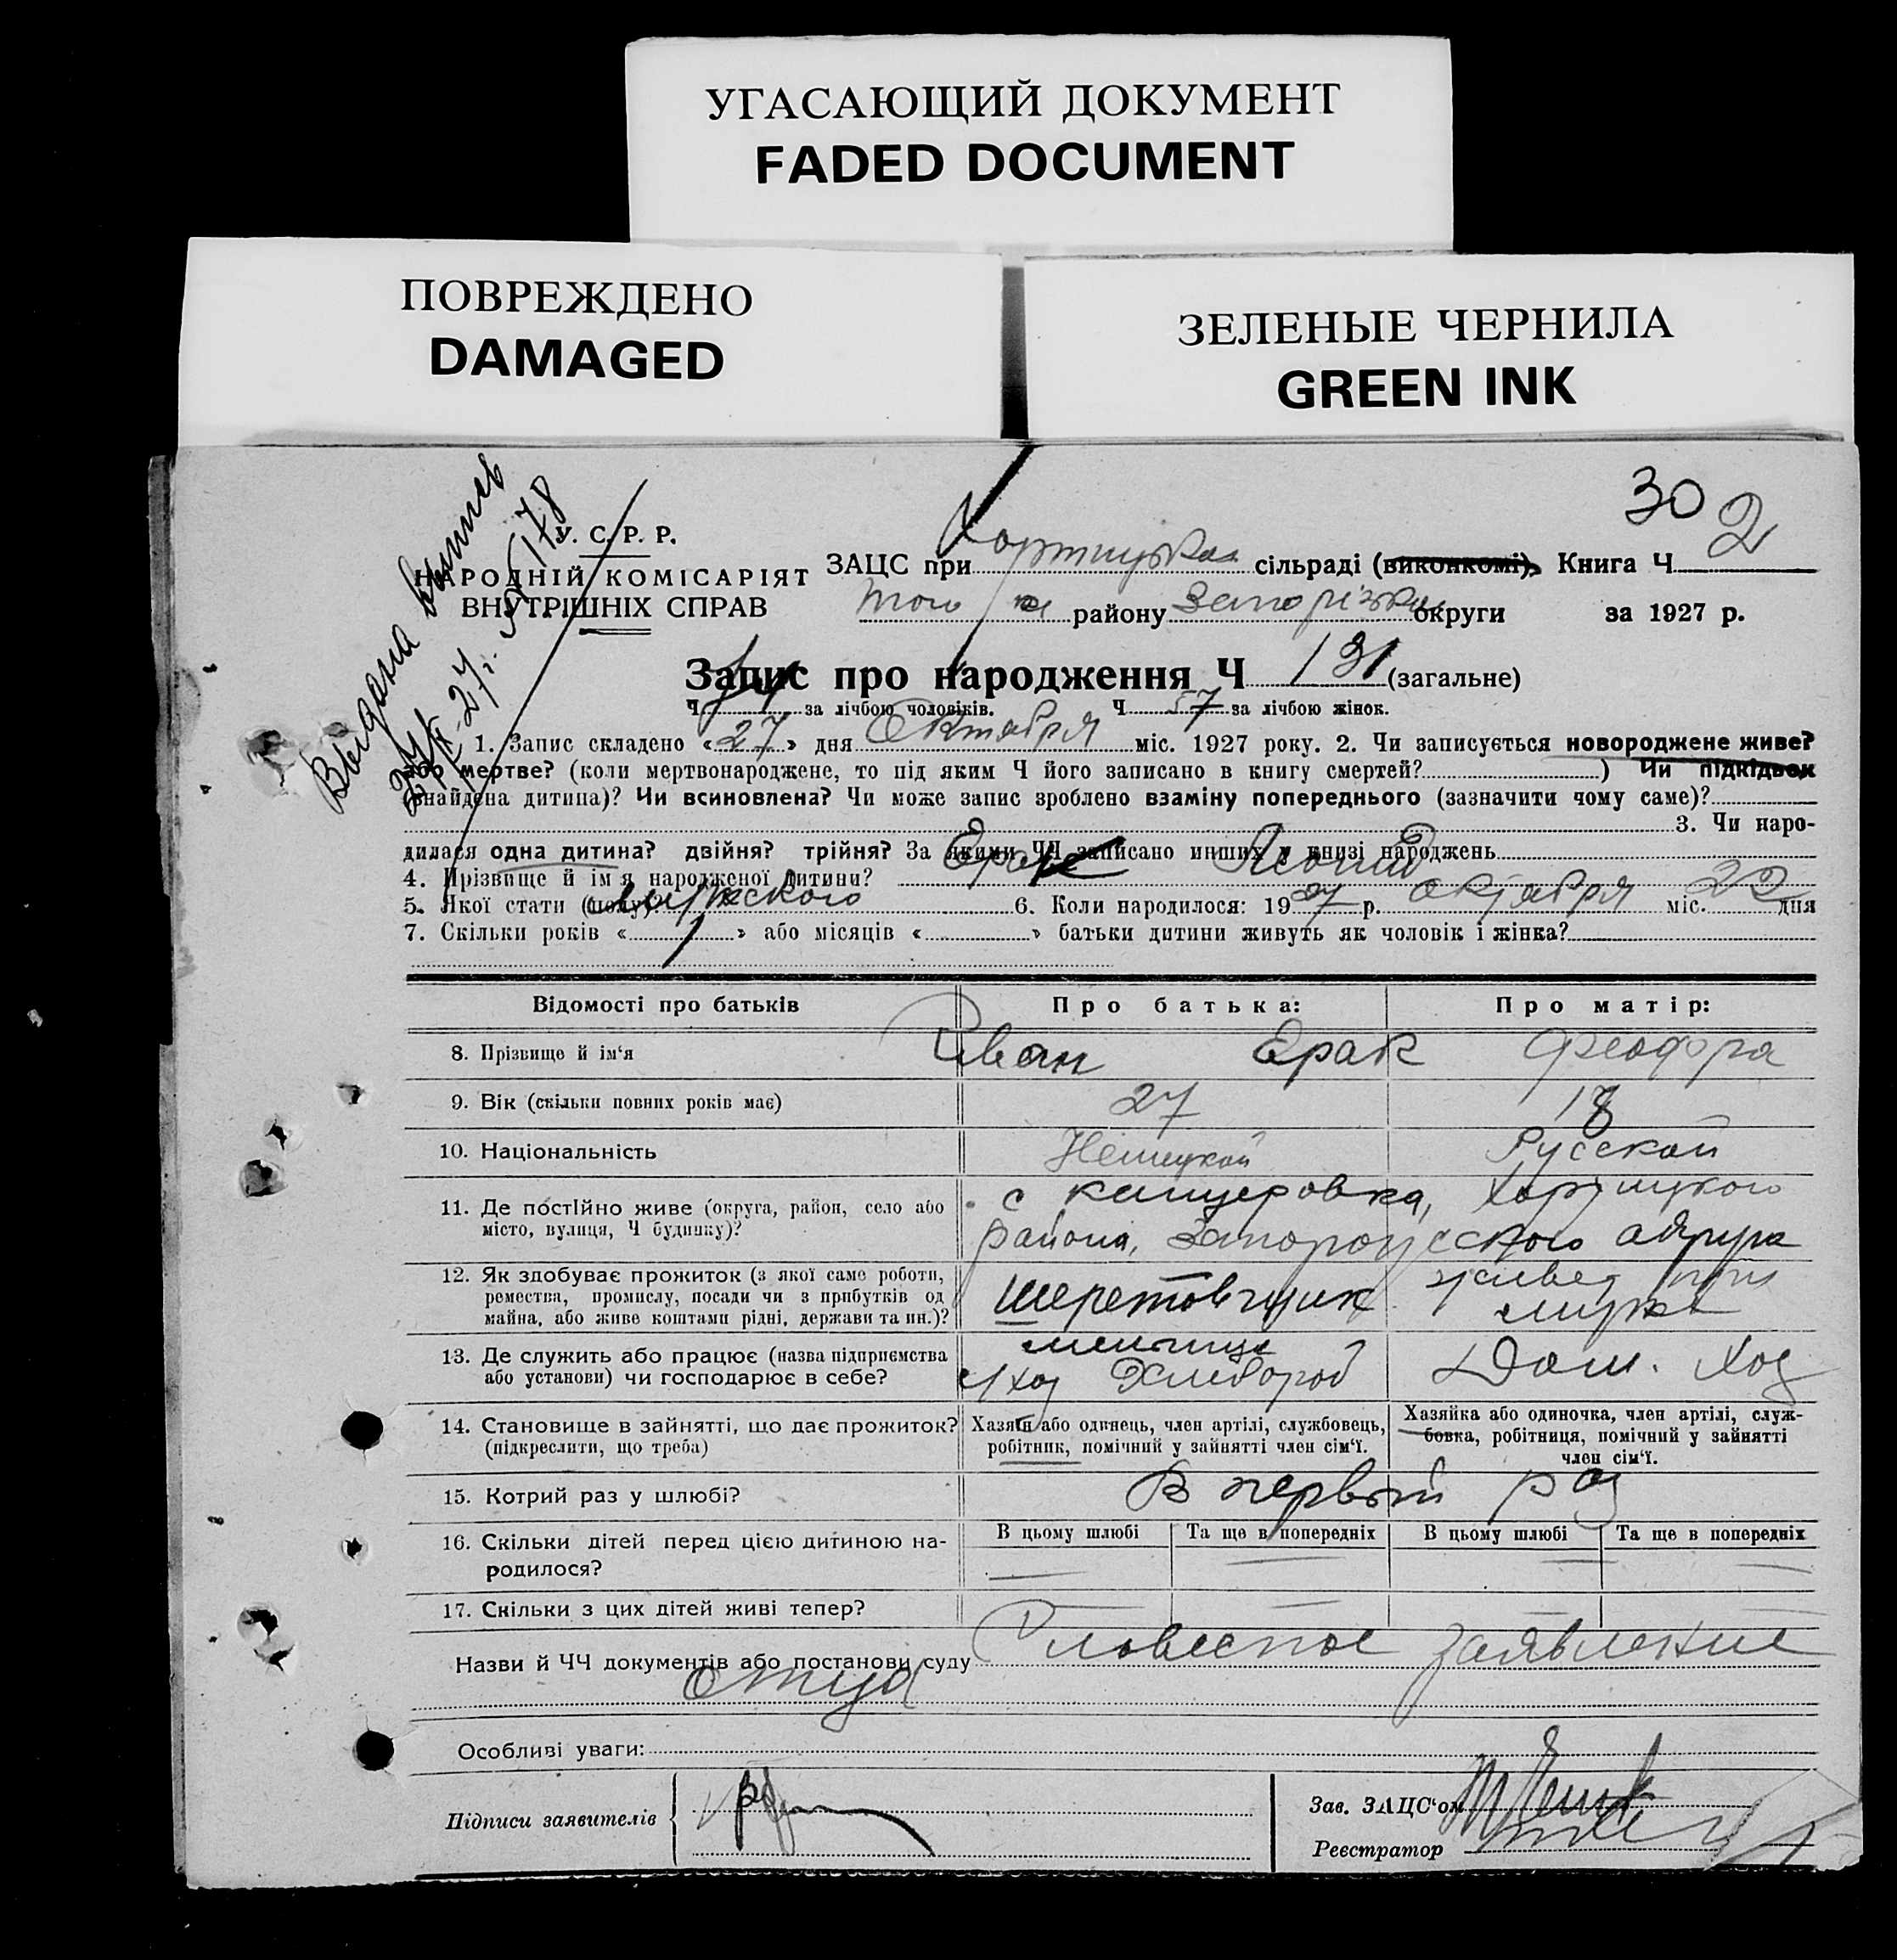 УГАСАЮЩИЙ ДОКУМЕНТ
FADED DOCUMENT
ПОВРЕЖДЕНО
DAMAGED
ЗЕЛЕНЫЕ ЧЕРНИЛА
GREEN INK
30
Выдана выпись
У. С. Р. Р.
НАРОДНІЙ КОМІСАРІЯТ
ВНУТРІШНІХ СПРАВ
ЗАЦС при Хортицкая сільраді (виконкомі). Книга Ч 2
того же району Запорізкая округи за 1927 р.
Запис про народження Ч 131 (загальне)
Ч за лічбою чоловіків. Ч 57 за лічбою жінок.
1. Запис складено « 27 » дня Октября міс. 1927 року. 2. Чи записується новороджене живе?
або мертве? (коли мертвонароджене, то під яким Ч його записано в книгу смертей? ) Чи підкідьок
(знайдена дитина)? Чи всиновлена? Чи може запис зроблено взаміну попереднього (зазначити чому саме)?
3. Чи наро-
дилася одна дитина? двійня? трійня? За якими ЧЧ записано инших у книзі народжень
4. Прізвище й ім'я народженої дитини? Ерак Леонид
5. Якої стати (полу)? мужского 6. Коли народилося: 1927 р. октября міс. 22 дня
7. Скільки років « 1 » або місяців « » батьки дитини живуть як чоловік і жінка?
Відомості про батьків Про батька: Про матір:
8. Прізвище й ім'я Иван Ерак Феодора
9. Вік (скільки повних років має) 27 18
10. Національність Немецкой Русской
11. Де постійно живе (округа, район, село або
місто, вулиця, Ч будинку)?
с канцеровка, Хортицкого
района, Запорожского округа
12. Як здобуває прожиток (з якої саме роботи,
ремества, промислу, посади чи з прибутків од
майна, або живе коштами рідні, держави та ин.)?
шеретовщик живет при
муже
13. Де служить або працює (назва підприємства
або установи) чи господарює в себе?
мельница
Дом. Хоз
14. Становище в зайнятті, що дає прожиток?
(підкреслити, що треба)
Хазяїн або одинець, член артілі, службовець,
робітник, помічний у зайнятті член сім'ї.
Хазяйка або одиночка, член артілі, служ-
бовка, робітниця, помічний у зайнятті
член сім'ї.
15. Котрий раз у шлюбі? В первый раз
16. Скільки дітей перед цією дитиною на-
родилося?
В цьому шлюбі Та ще в попередніх В цьому шлюбі Та ще в попередніх
17. Скільки з цих дітей живі тепер?
Назви й ЧЧ документів або постанови суду Словесное заявление
отца
Особливі уваги:
Підписи заявителів
Зав. ЗАЦС'ом
Реєстратор